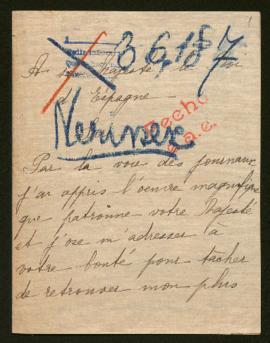 36187
A sa Majesté le Roi
d'Espagne
Hecho
Par la voie des journaux
j'ai appris l'œuvre magnifique
que patronne votre Majesté
et j'ose m'adresser à
votre bonté pour tâcher
de retrouver mon plus